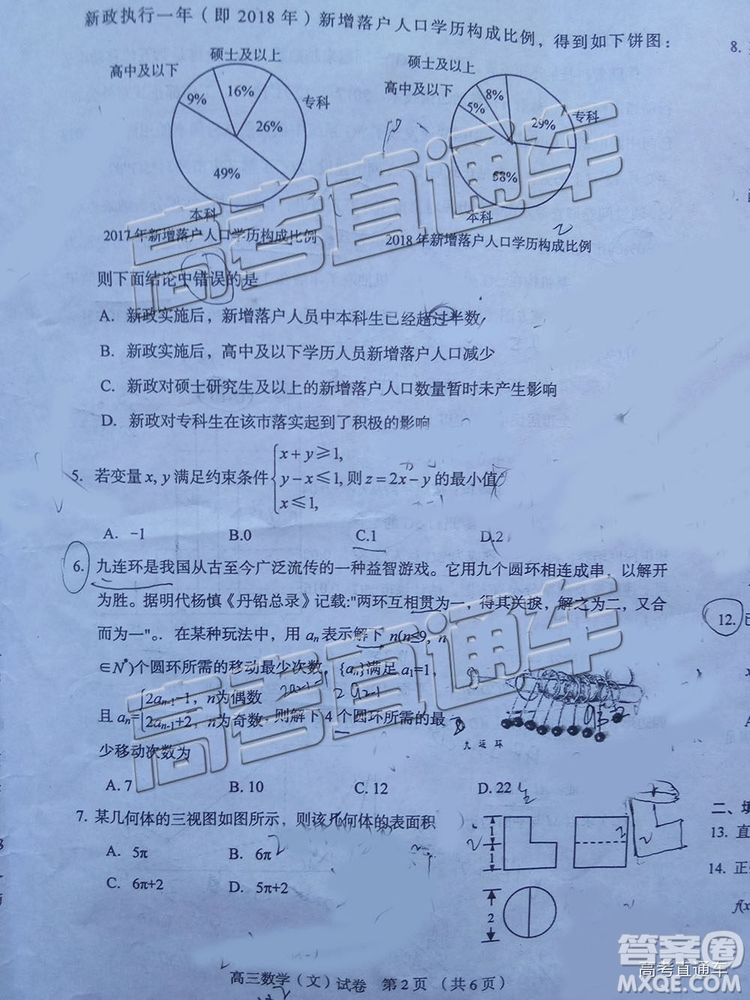 新政执行一年(即2018年)新增落户人口学历构成比例,得到如下饼图:
硕士及以上
高中及以下
专科
9%
16%
26%
49%
本科
2017年新增落户人口学历构成比例
硕士及以上
高中及以下
专科
5%
8%
29%
58%
本科
2018年新增落户人口学历构成比例
则下面结论中错误的是
A. 新政实施后,新增落户人员中本科生已经超过半数
B. 新政实施后,高中及以下学历人员新增落户人口减少
C. 新政对硕士研究生及以上的新增落户人口数量暂时未产生影响
D. 新政对专科生在该市落实起到了积极的影响
5. 若变量x, y满足约束条件{x+y≥1, y−x≤1, x≤1, 则z=2x−y的最小值
A. -1 B.0 C.1 D.2
6. 九连环是我国从古至今广泛流传的一种益智游戏。它用九个圆环相连成串,以解开
为胜。据明代杨慎《丹铅总录》记载:"两环互相贯为一,得其关捩,解之为二,又合
而为一"。. 在某种玩法中,用aₙ表示解下n(n≤9, n
∈N*)个圆环所需的移动最少次数,{aₙ}满足a₁=1,
且aₙ={2aₙ₋₁−1, n为偶数 2aₙ₋₁+2, n为奇数,则解下4个圆环所需的最
少移动次数为
九连环
A. 7 B. 10 C. 12 D. 22
7. 某几何体的三视图如图所示,则该几何体的表面积
A. 5π B. 6π
C. 6π+2 D. 5π+2
1
1
2
高三数学(文)试卷 第2页 (共6页)
8.
12. 已
二、填
13. 直
14. 正
f(x
高考直通车
高考直通车
答案圈
高考直通车
MXQE.COM